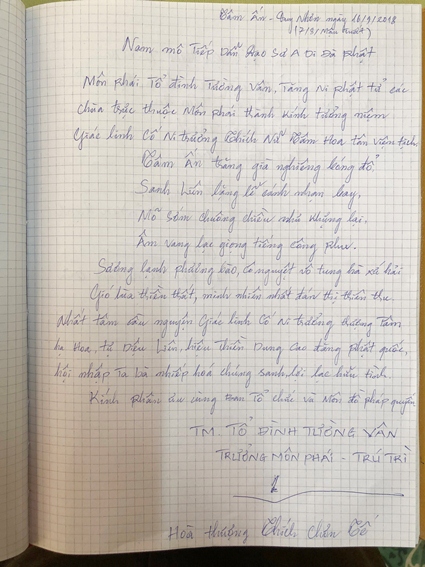 Tâm Ấn - Quy Nhơn ngày 16/9/2018
(7/8/Mậu Tuất)
Nam mô Tiếp Dẫn Đạo Sư A Di Đà Phật
Môn phái Tổ đình Tường Vân, Tăng Ni phật tử các
chùa trực thuộc Môn phái thành kính tưởng niệm
Giác linh Cố Ni trưởng Thích Nữ Tâm Hoa tân viên tịch.
Tâm Ấn trăng già nghiêng bóng đổ
Sanh Liên lặng lẽ cánh nhạn bay,
Mõ sớm chuông chiều như khựng lại,
Âm vang lạc giọng tiếng công phu.
Sương lạnh phương bào, cô nguyệt vô tung hà xứ hải
Gió lùa thiền thất, minh nhiên nhất đán thị thiên thu.
Nhất tâm cầu nguyện Giác linh Cố Ni trưởng thượng Tâm
hạ Hoa, tự Diệu Liên, hiệu Thiền Dung cao đăng phật quốc,
hội nhập Ta bà nhiếp hoá chúng sanh, lợi lạc hữu tình.
Kính phân ưu cùng Ban Tổ chức và Môn đồ pháp quyến
TM. TỔ ĐÌNH TƯỜNG VÂN
TRƯỞNG MÔN PHÁI - TRÚ TRÌ
Hoà thượng Thích Chơn Tế